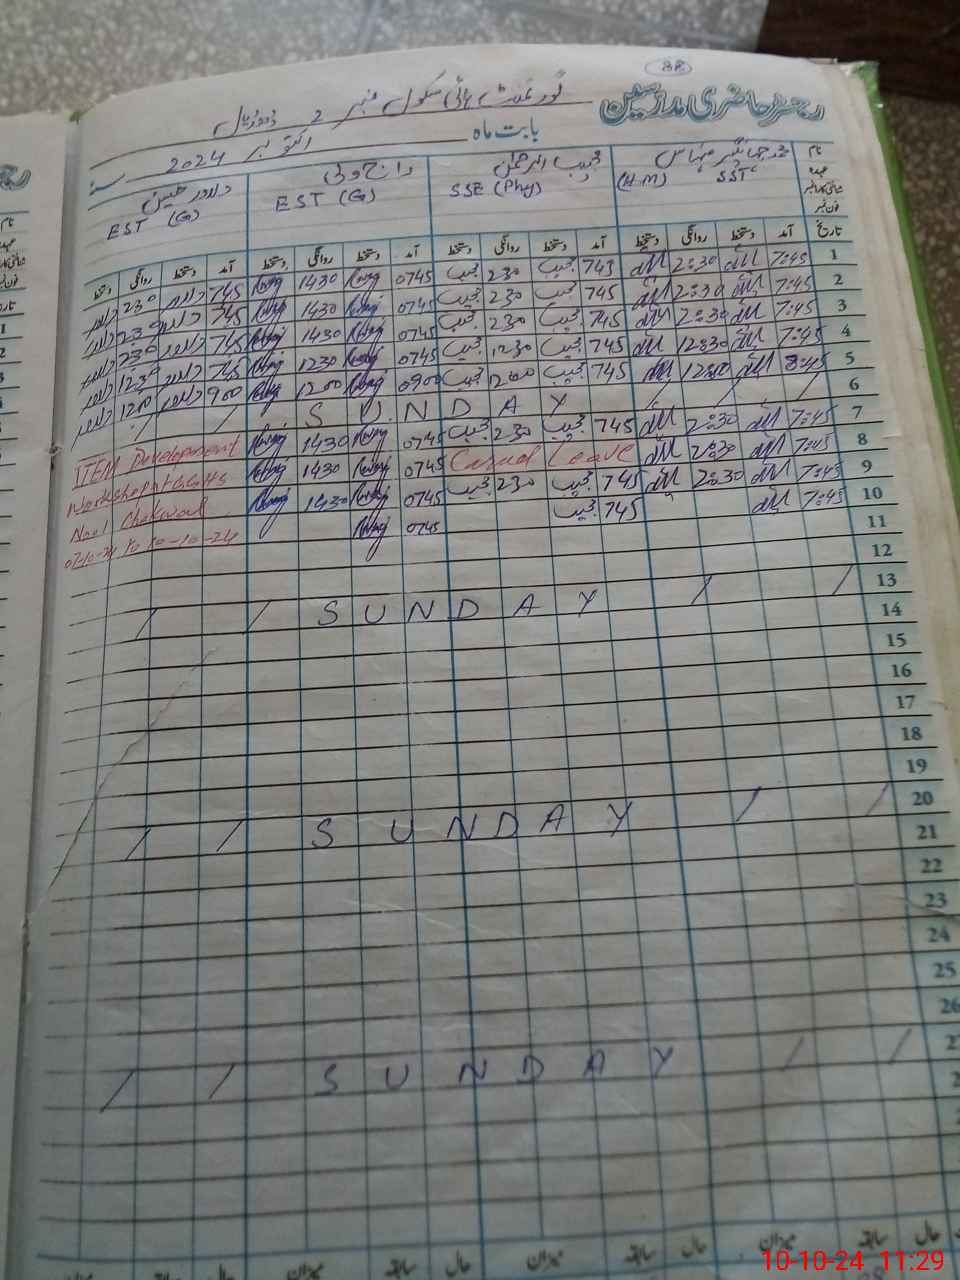 38
رجسٹر حاضری مدارسین
گورنمنٹ ہائی سکول نمبر 2
بابت ماہ اکتوبر 2024
نام
عہدہ
تاریخ
SST (H.M)
مجیب الرحمٰن SSE (Phy)
EST (G)
دلاور حسین EST (G)
آمد دستخط روانگی دستخط آمد دستخط روانگی دستخط آمد دستخط روانگی دستخط آمد دستخط روانگی دستخط
1 7:45 2:30 745 مجیب 230 مجیب 0745 1430 745 دلاور 230 دلاور
2 7:45 2:30 745 مجیب 230 مجیب 0745 1430 745 دلاور 230 دلاور
3 7:45 2:30 745 مجیب 230 مجیب 0745 1430 745 دلاور 230 دلاور
4 7:45 12:30 745 مجیب 1230 مجیب 0745 1230 745 دلاور 1230 دلاور
5 8:45 12:00 745 مجیب 1200 مجیب 0900 1200 900 دلاور 1200 دلاور
6 / / S U N D A Y / /
7 7:45 2:30 745 مجیب 230 مجیب 0745 1430 ITEM Development
8 7:45 2:30 Casual Leave 0745 1430 Workshop at GGHS
9 7:45 2:30 745 مجیب 230 مجیب 0745 1430 No.1 Chakwal
10 7:45 745 مجیب 0745 07-10-24 to 10-10-24
11
12
13 / / S U N D A Y / /
14
15
16
17
18
19
20 / / S U N D A Y / /
21
22
23
24
25
26
27 / / S U N D A Y / /
حال سابقہ میزان حال سابقہ میزان حال سابقہ میزان حال سابقہ
10-10-24 11:29